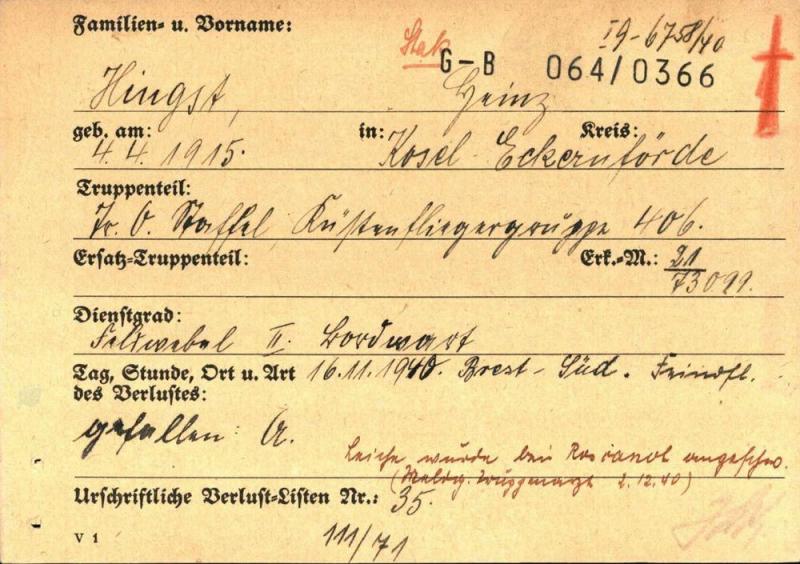 Familien- u. Vorname:
I9-6758/40
G-B 064/0366
Hingst, Heinz
geb. am: in: Kreis:
4.4.1915. Kosel Eckernförde
Truppenteil:
Tr. O. Staffel, Küstenfliegergruppe 406.
Ersatz-Truppenteil: Erk.-M.: 21
73099.
Dienstgrad:
Feldwebel II. Bordwart
Tag, Stunde, Ort u. Art 16.11.1940. Brest-Süd. Feindfl.
des Verlustes:
gefallen: A.
Leiche wurde bei angeschw.
(Meldg. Truppenarzt 2.12.40)
Urschriftliche Verlust-Listen Nr.: 35.
V 1
111/71